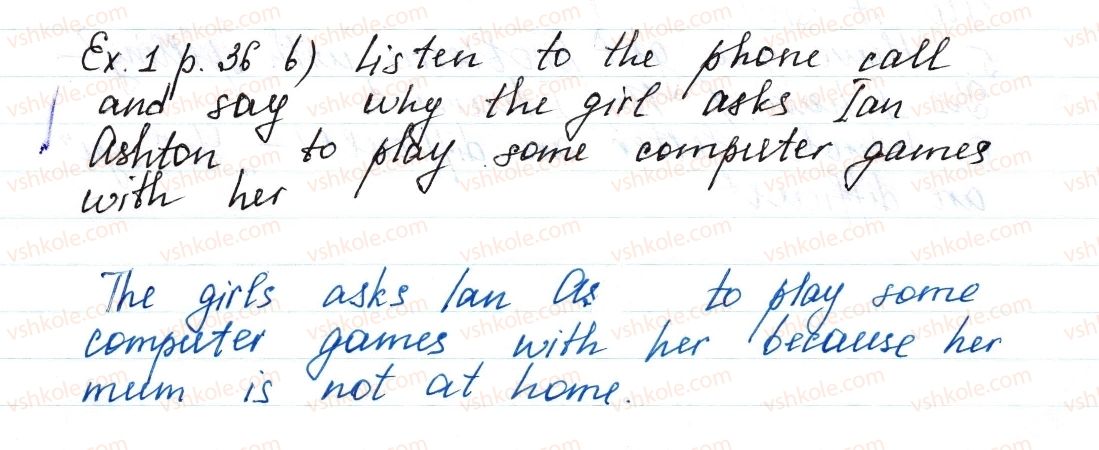 Ex. 1 p. 36 b) Listen to the phone call
and say why the girl asks Ian
Ashton to play some computer games
with her
The girls asks Ian As to play some
computer games with her because her
mum is not at home.